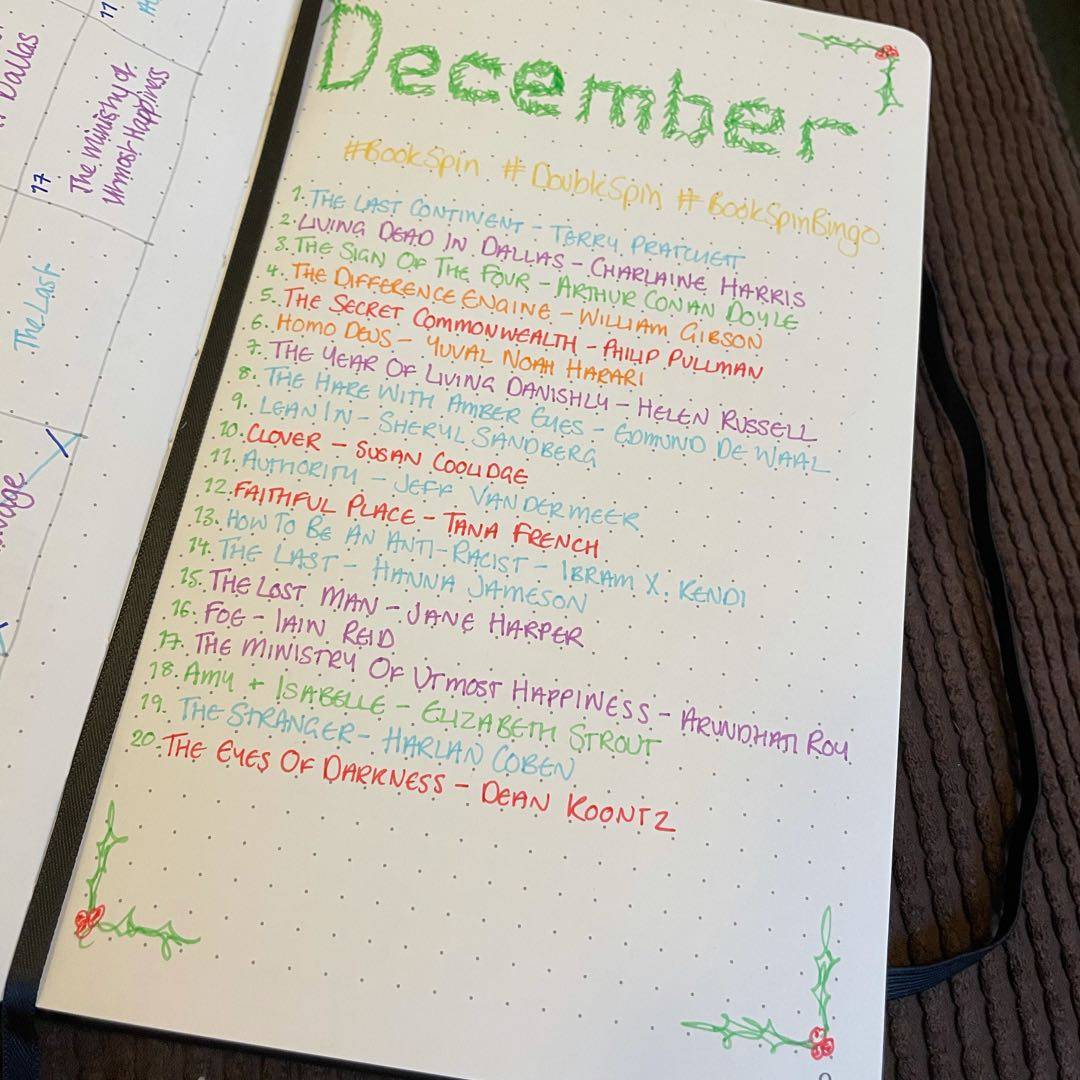 Dallas
11
17
The Ministry of
Utmost Happiness
The Last
December
#BookSpin #DoubleSpin #BookSpinBingo
1. THE LAST CONTINENT - TERRY PRATCHETT
2. LIVING DEAD IN DALLAS - CHARLAINE HARRIS
3. THE SIGN OF THE FOUR - ARTHUR CONAN DOYLE
4. THE DIFFERENCE ENGINE - WILLIAM GIBSON
5. THE SECRET COMMONWEALTH - PHILIP PULLMAN
6. HOMO DEUS - YUVAL NOAH HARARI
7. THE YEAR OF LIVING DANISHLY - HELEN RUSSELL
8. THE HARE WITH AMBER EYES - EDMUND DE WAAL
9. LEAN IN - SHERYL SANDBERG
10. CLOVER - SUSAN COOLIDGE
11. AUTHORITY - JEFF VANDERMEER
12. FAITHFUL PLACE - TANA FRENCH
13. HOW TO BE AN ANTI-RACIST - IBRAM X. KENDI
14. THE LAST - HANNA JAMESON
15. THE LOST MAN - JANE HARPER
16. FOE - IAIN REID
17. THE MINISTRY OF UTMOST HAPPINESS - ARUNDHATI ROY
18. AMY + ISABELLE - ELIZABETH STROUT
19. THE STRANGER - HARLAN COBEN
20. THE EYES OF DARKNESS - DEAN KOONTZ